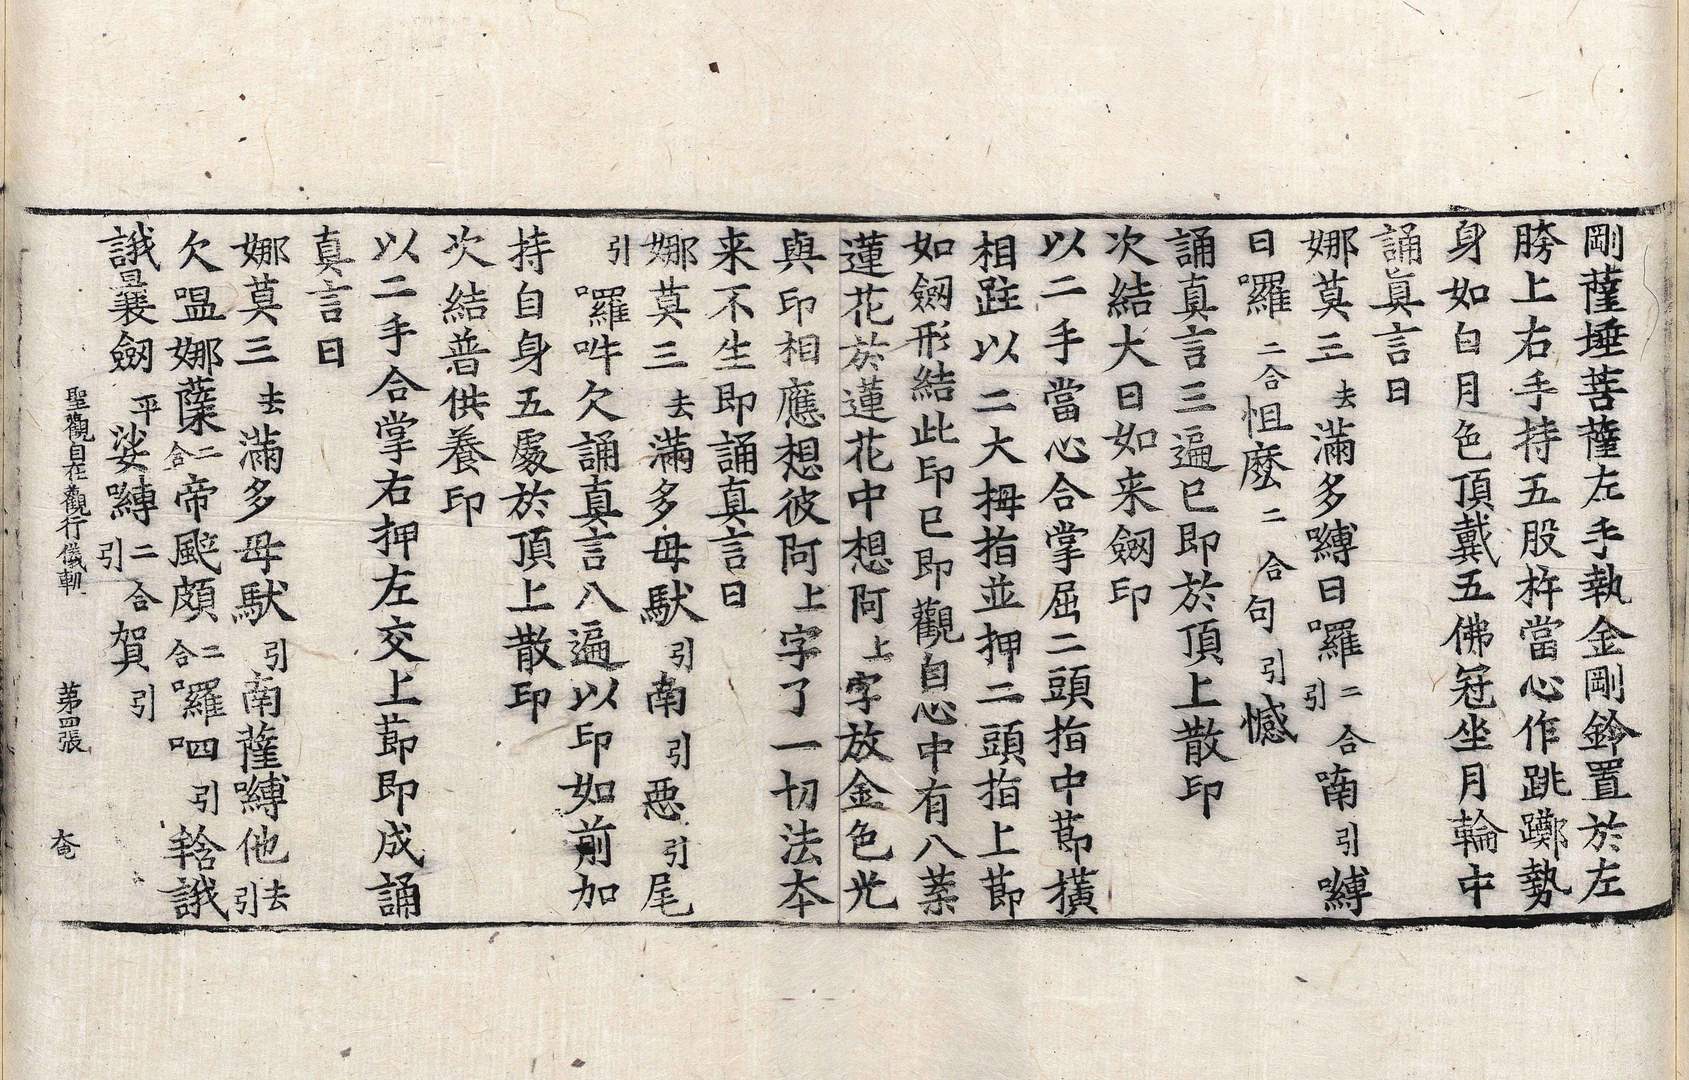 剛薩埵菩薩左手執金剛鈴置於左
胯上右手持五股杵當心作跳躑勢
身如白月色頂戴五佛冠坐月輪中
誦真言曰
娜莫三去滿多嚩日囉二合引喃引嚩
日囉二合怛麼二合句引憾
誦真言三遍已即於頂上散印
次結大日如来劔印
以二手當心合掌屈二頭指中莭橫
相跓以二大拇指並押二頭指上莭
如劔形結此印已即觀自心中有八葉
蓮花於蓮花中想阿上字放金色光
與印相應想彼阿上字了一切法本
来不生即誦真言曰
娜莫三去滿多母馱引南引惡引尾
引囉吽欠誦真言八遍以印如前加
持自身五處於頂上散印
次結普供養印
以二手合掌右押左交上莭即成誦
真言曰
娜莫三去滿多母馱引南薩嚩他去引
欠嗢娜蘖二合帝颰頗二合囉呬引輡誐
誐曩劔平娑嚩二合引賀引
聖觀自在觀行儀軌 第四張 奄